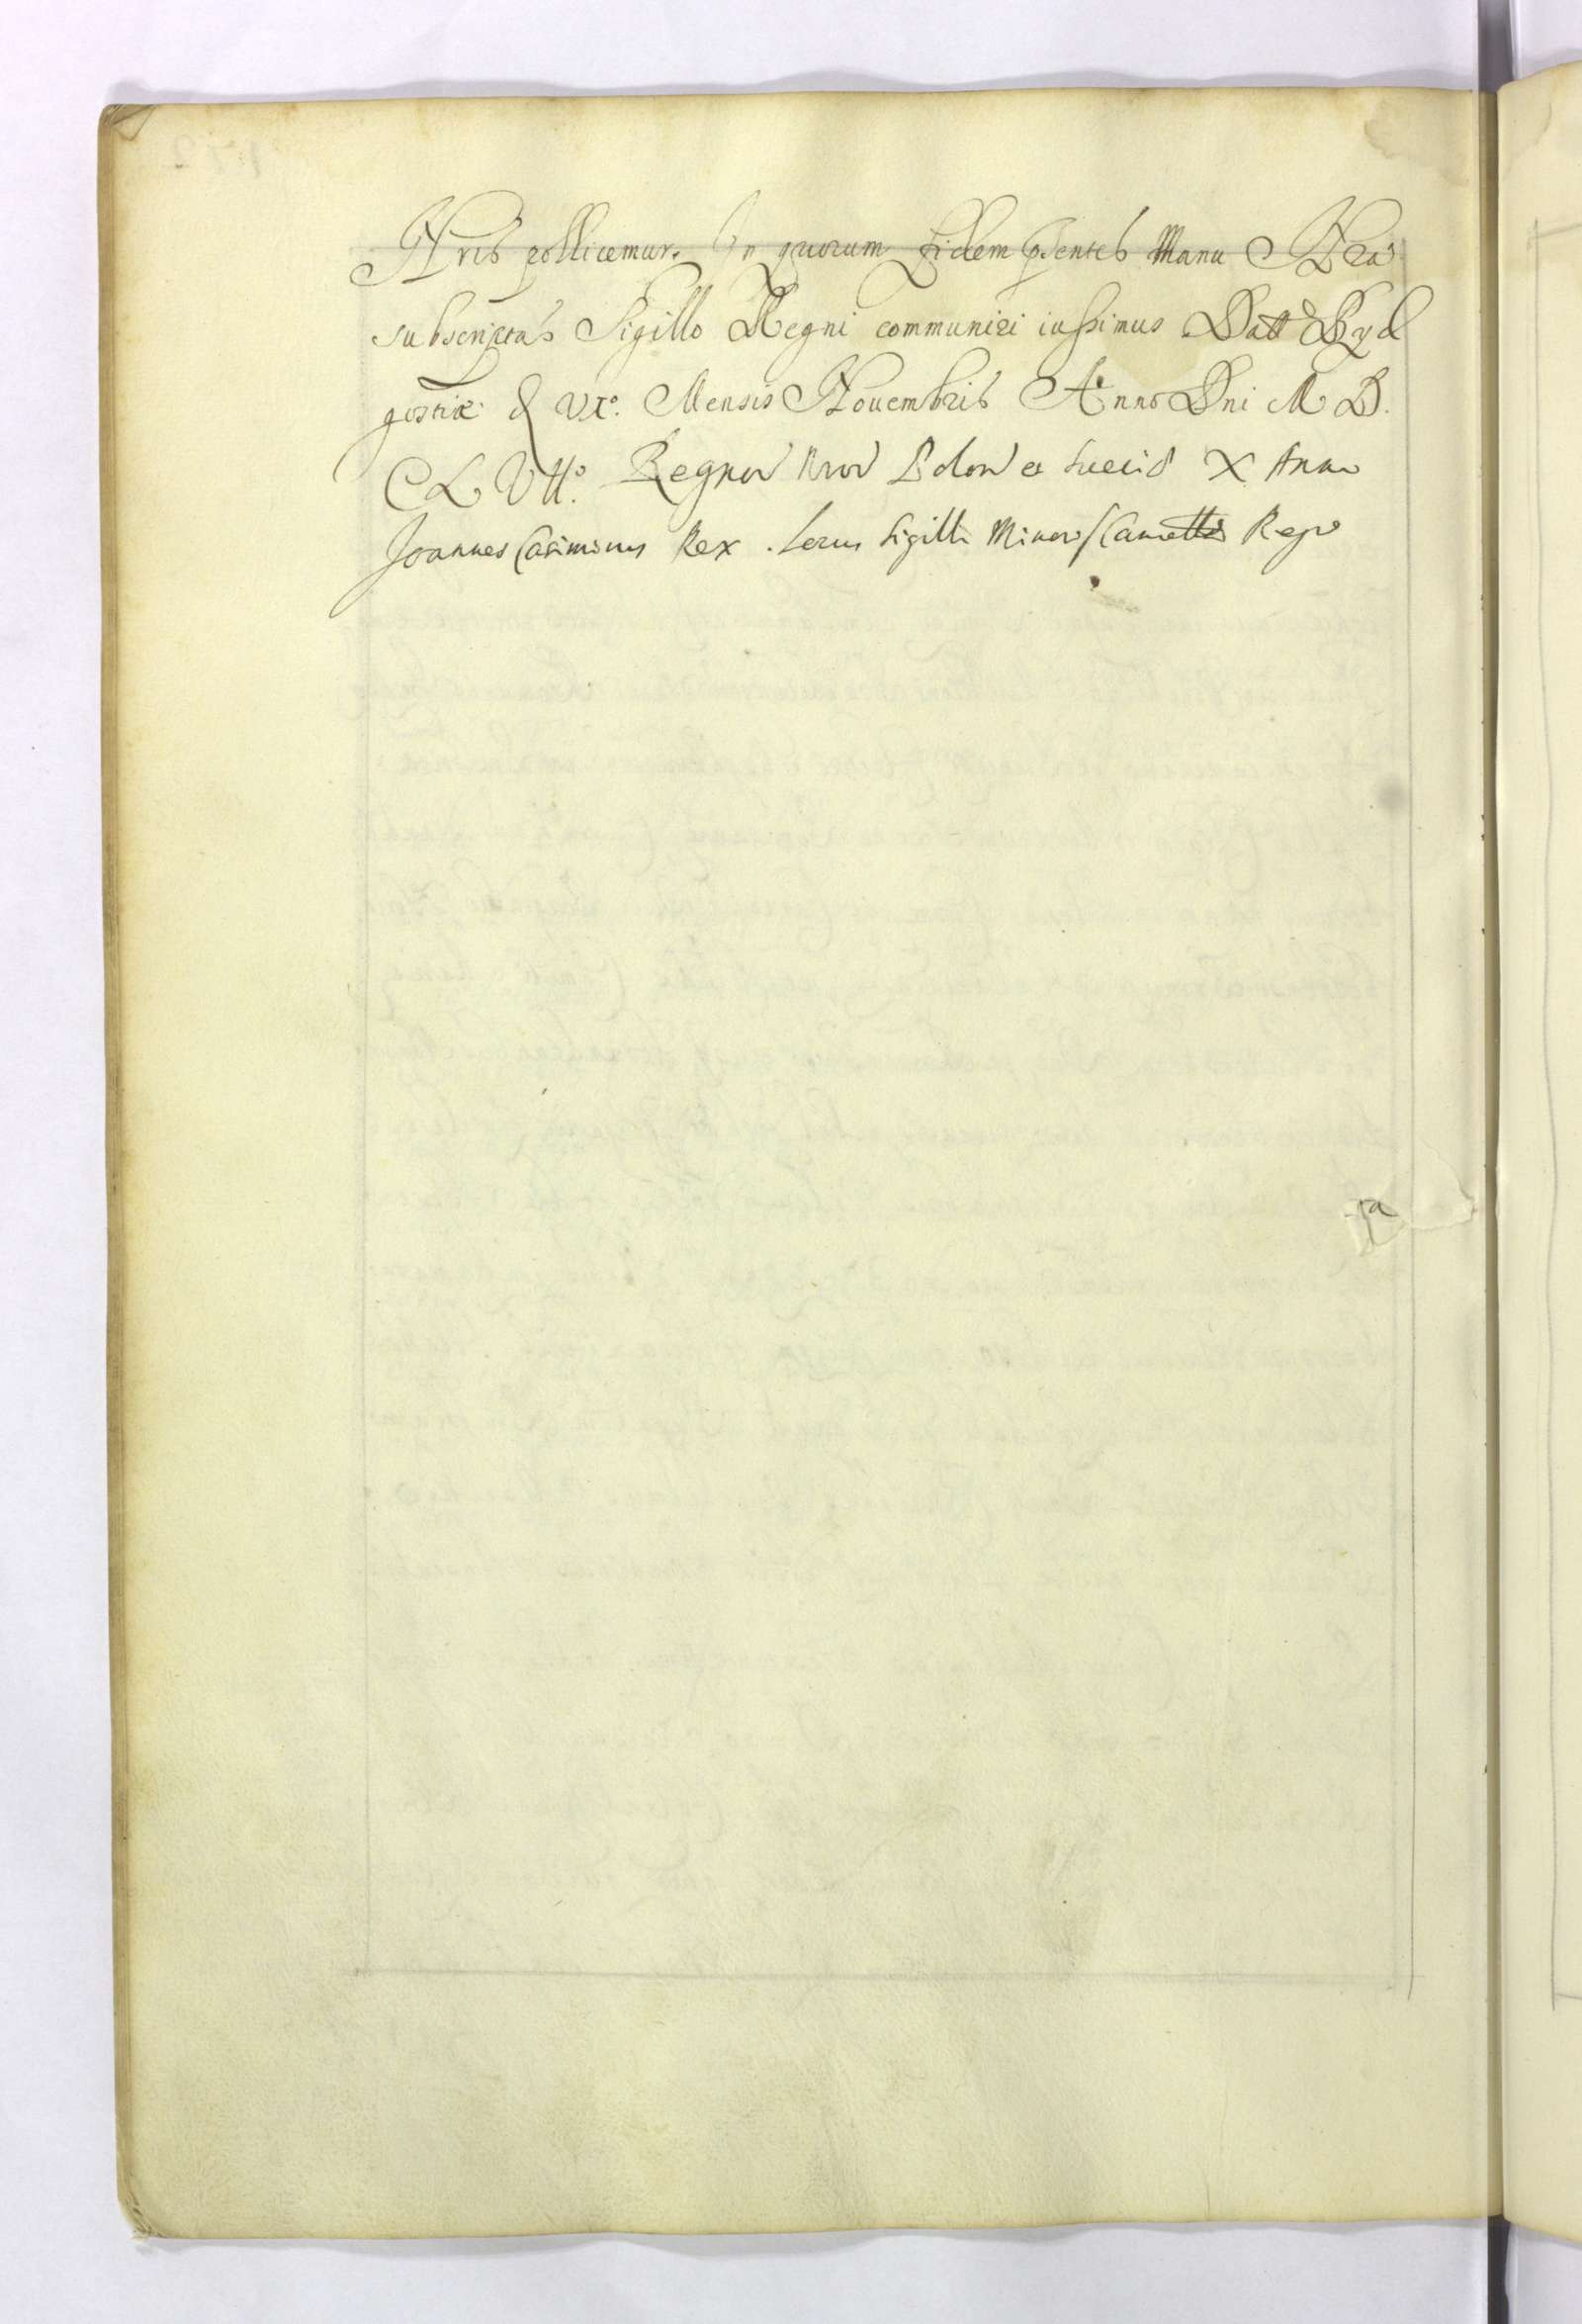 Nris pollicemur. In quorum fidem pñtes Manu Nra
subscriptas Sigillo Regni communiri iussimus Datt Byd
gostiæ d VIº. Mensis Nouembris Anno Dni M D.
C L VIIº. Regnor Nror Polon et Sueciæ X Anno
Joannes Casimirus Rex. Locus Sigilli Minor Cancell Regn